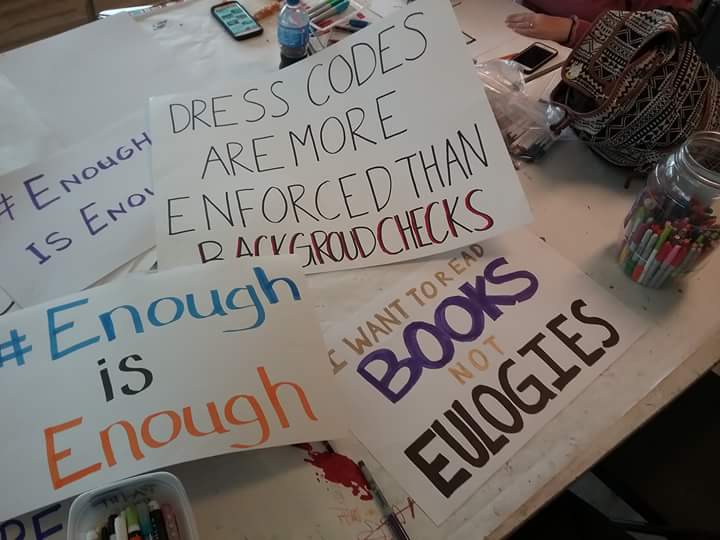 DRESS CODES
ARE MORE
ENFORCED THAN
BACKGROUD CHECKS
# ENOUGH
IS ENOU
#Enough
is
Enough
I WANT TO READ
BOOKS
NOT
EULOGIES